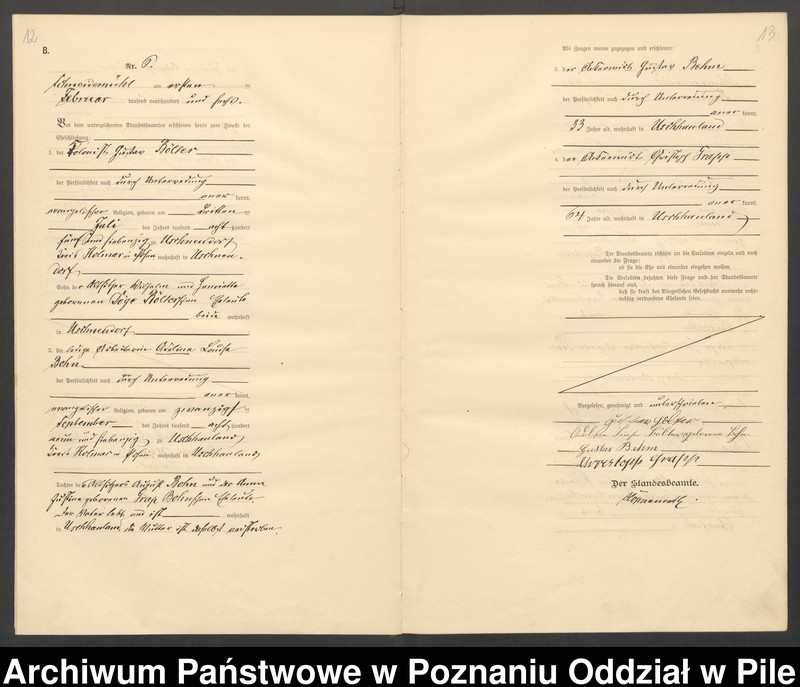 12
B.
Nr. 6.
Schneidemühl am ersten
Februar tausend neunhundert und sechs.
Vor dem unterzeichneten Standesbeamten erschienen heute zum Zwecke der
Eheschließung:
1. der Kolonist Gustav Bölter
der Persönlichkeit nach durch Unterredung
kannt,
evangelischer Religion, geboren am dritten
Juli des Jahres tausend acht hundert
fünf und siebenzig zu Uschnendorf,
Kreis Kolmar in Posen, wohnhaft in Uschnen-
dorf,
Sohn der Wilhelm und Henriette
geborenen Bölterschen Eheleute
beide wohnhaft
in Uschnendorf
2. die ledige Louise
Bohn
der Persönlichkeit nach durch Unterredung
kannt,
evangelischer Religion, geboren am zwanzigsten
September des Jahres tausend acht hundert
neun und siebenzig, zu Uschhauland,
Kreis Kolmar in Posen, wohnhaft in Uschhauland,
Tochter des August Bohn und der Anna
Justine geborenen Bohnschen Eheleute
der Vater lebt und ist wohnhaft
in Uschhauland, die Mutter ist daselbst verstorben.
13
Als Zeugen waren zugezogen und erschienen:
3. der Gustav Bohm
der Persönlichkeit nach durch Unterredung
kannt,
33 Jahre alt, wohnhaft in Uschhauland
4. der Christoph
der Persönlichkeit nach durch Unterredung
kannt,
64 Jahre alt, wohnhaft in Uschhauland,
Der Standesbeamte richtete an die Verlobten einzeln und nach
einander die Frage:
ob sie die Ehe mit einander eingehen wollen.
Die Verlobten bejahten diese Frage und der Standesbeamte
sprach hierauf aus,
daß sie kraft des Bürgerlichen Gesetzbuchs nunmehr recht-
mäßig verbundene Eheleute seien.
Vorgelesen, genehmigt und unterschrieben
Gustav Bölter
geborene Bohn
Gustav Bohm
Der Standesbeamte.
Archiwum Państwowe w Poznaniu Oddział w Pile